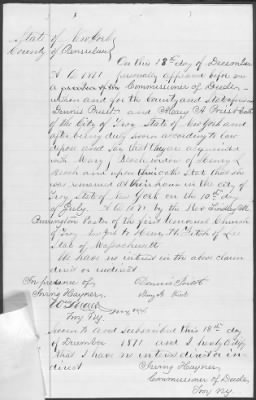 State of New York
County of Rensselaer
On this 18th day of December
A D 1871 personally appeared before me
a Commissioner of Deeds
within and for the County and State aforesaid
Dennis Priest and Mary A Priest both
of the City of Troy State of New York and
after being duly sworn according to law
depose and say that they are acquainted
with Mary J Beech widow of Henry L
Beech and upon their oath state that she
was remarried at their house in the city of
Troy State of New York on the 10th day
of July A D 1871 by the Rev Lindley M
Burrington Pastor of the first Unionist Church
of Troy to Henry H Fitch of Lee
State of Massachusetts
We have no interest in the above claim
direct or indirect
In presence of Dennis Priest
Irving Hayner Mary A Priest
Troy N.Y.
Sworn to and subscribed this 18th day
of December 1871 and I hereby certify
that I have no interest direct or in
direct Irving Hayner
Commissioner of Deeds
Troy N.Y.